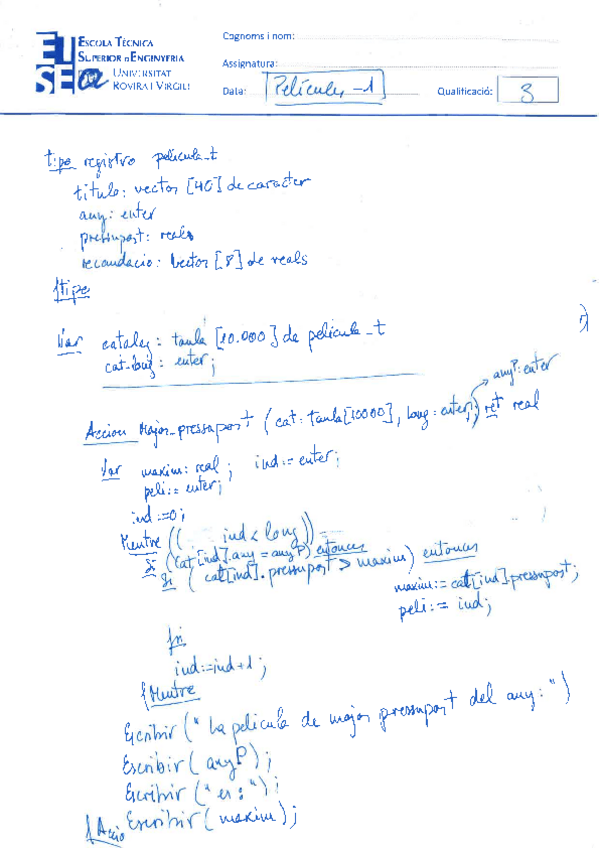 ESCOLA TÈCNICA
SUPERIOR D'ENGINYERIA
UNIVERSITAT
ROVIRA I VIRGILI
Cognoms i nom:
Assignatura:
Data: Películes -1
Qualificació: 3
tipo registro pelicula_t
titulo: vector [40] de caracter
any: enter
pressupost: reals
recaudacio: vector [8] de reals
ftipo
Var cataleg: taula [10.000] de pelicula_t
cat-long: enter;
any P: enter
Accion Major_pressupost (cat: taula[10000], long: enter;) ret real
Var maxim: real; ind:= enter;
peli:= enter;
ind:=0;
Mentre ( ( ind < long))
Si (cat[ind].any = anyP) entonces
Si (cat[ind].pressupost > maxim) entonces
maxim:= cat[ind].pressupost;
peli:= ind;
fsi
ind:=ind+1;
fMentre
Escribir (" La pelicula de major pressupost del any: ")
Escribir ( anyP);
Escribir (" es: ");
fAccio Escribir ( maxim);